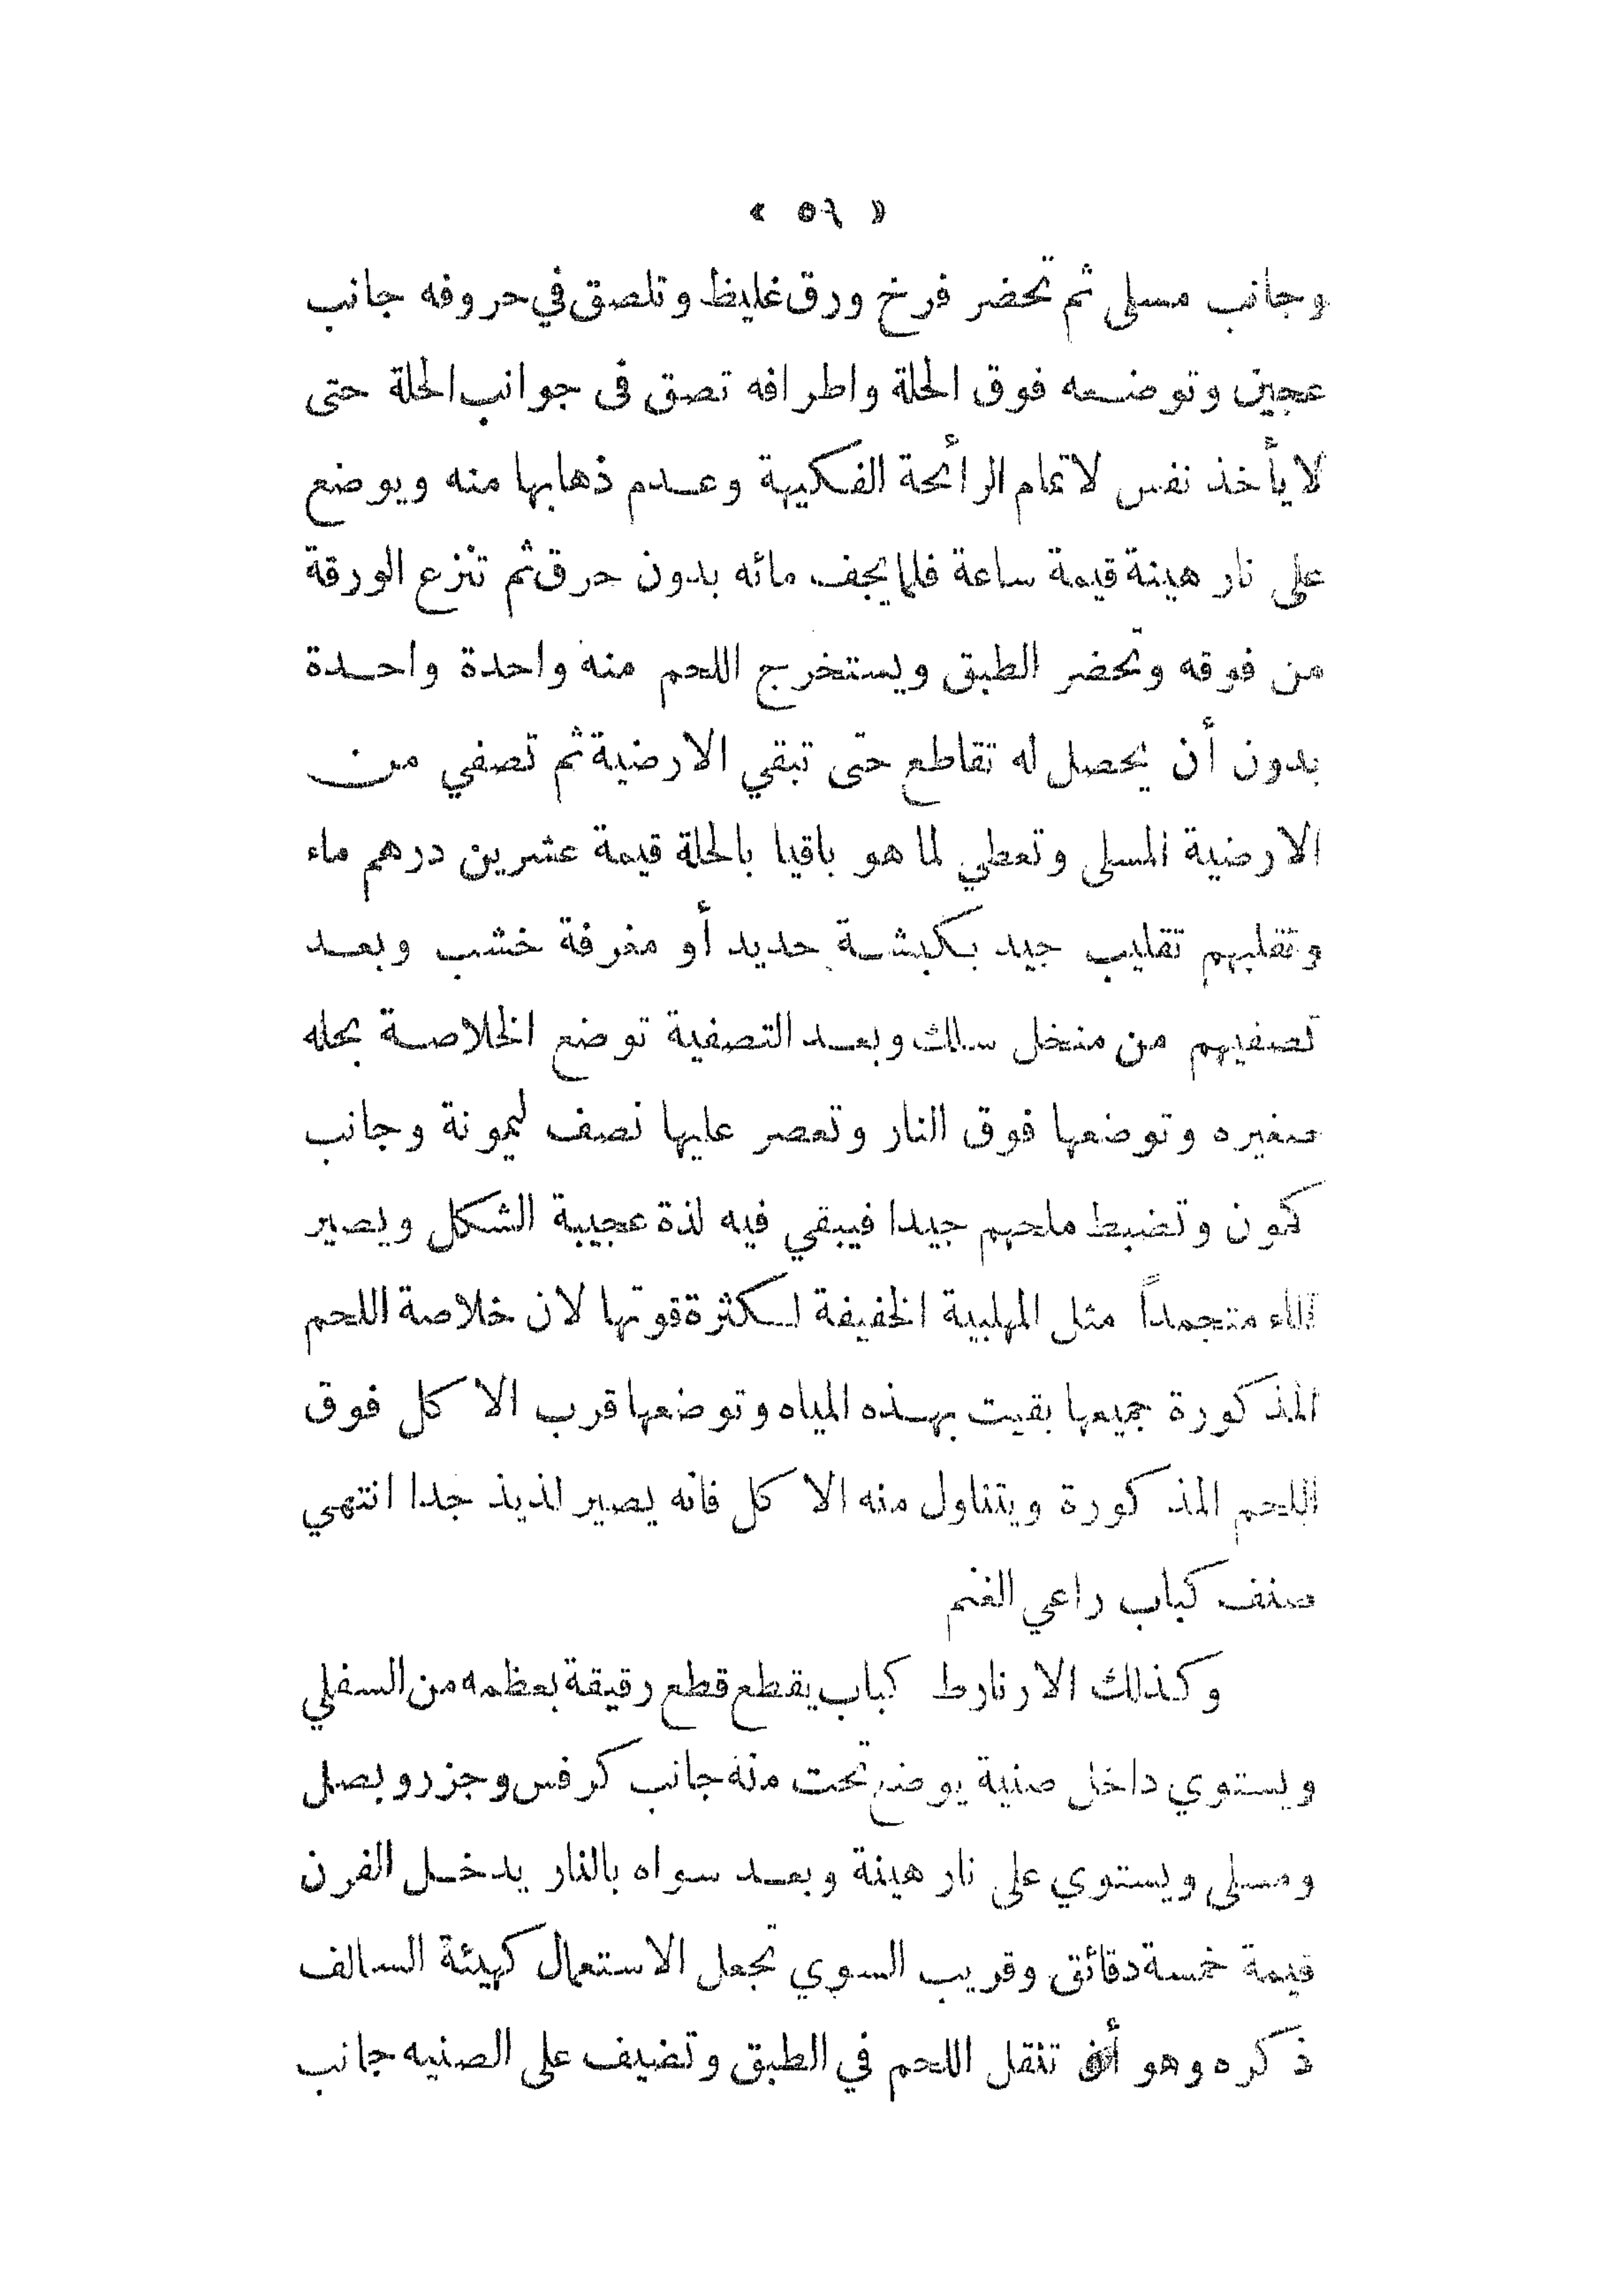 « ٥٦ »
وجانب مسلى ثم تحضر فرخ ورق غليظ وتلصق في حروفه جانب
عجين وتوضعه فوق الحلة واطرافه تصق فى جوانب الحلة حتى
لا يأخذ نفس لاتمام الرأئحة الفكيهة وعدم ذهابها منه ويوضع
على نار هينة قيمة ساعة فلما يجف مائه بدون حرق ثم تنزع الورقة
من فوقه وتحضر الطبق ويستخرج اللحم منه واحدة واحدة
بدون أن يحصل له تقاطع حتى تبقي الارضية ثم تصفي من
الارضية المسلى وتعطي لما هو باقيا بالحلة قيمة عشرين درهم ماء
وتقلبهم تقليب جيد بكبشة حديد أو مغرفة خشب وبعد
تصفيهم من منخل سلك وبعد التصفية توضع الخلاصة بحله
صغيره وتوضعها فوق النار وتعصر عليها نصف ليمونة وجانب
كمون وتضبط ملحهم جيدا فيبقي فيه لذة عجيبة الشكل ويصير
الماء متجمداً مثل المهلبية الخفيفة لكثرة قوتها لان خلاصة اللحم
المذكورة جميعها بقيت بهذه المياه وتوضعها قرب الاكل فوق
اللحم المذكورة ويتناول منه الاكل فانه يصير لذيذ جدا انتهي
صنف كباب راعي الغنم
وكذلك الارنارط كباب يقطع قطع رقيقة بعظمه من السفلي
ويستوي داخل صنية يوضع تحت منه جانب كرفس وجزر وبصل
ومسلى ويستوي على نار هينة وبعد سواه بالنار يدخل الفرن
قيمة خمسة دقائق وقريب السوي تجعل الاستعمال كهيئة السالف
ذكره وهو أن تنقل اللحم في الطبق وتضيف على الصنيه جانب